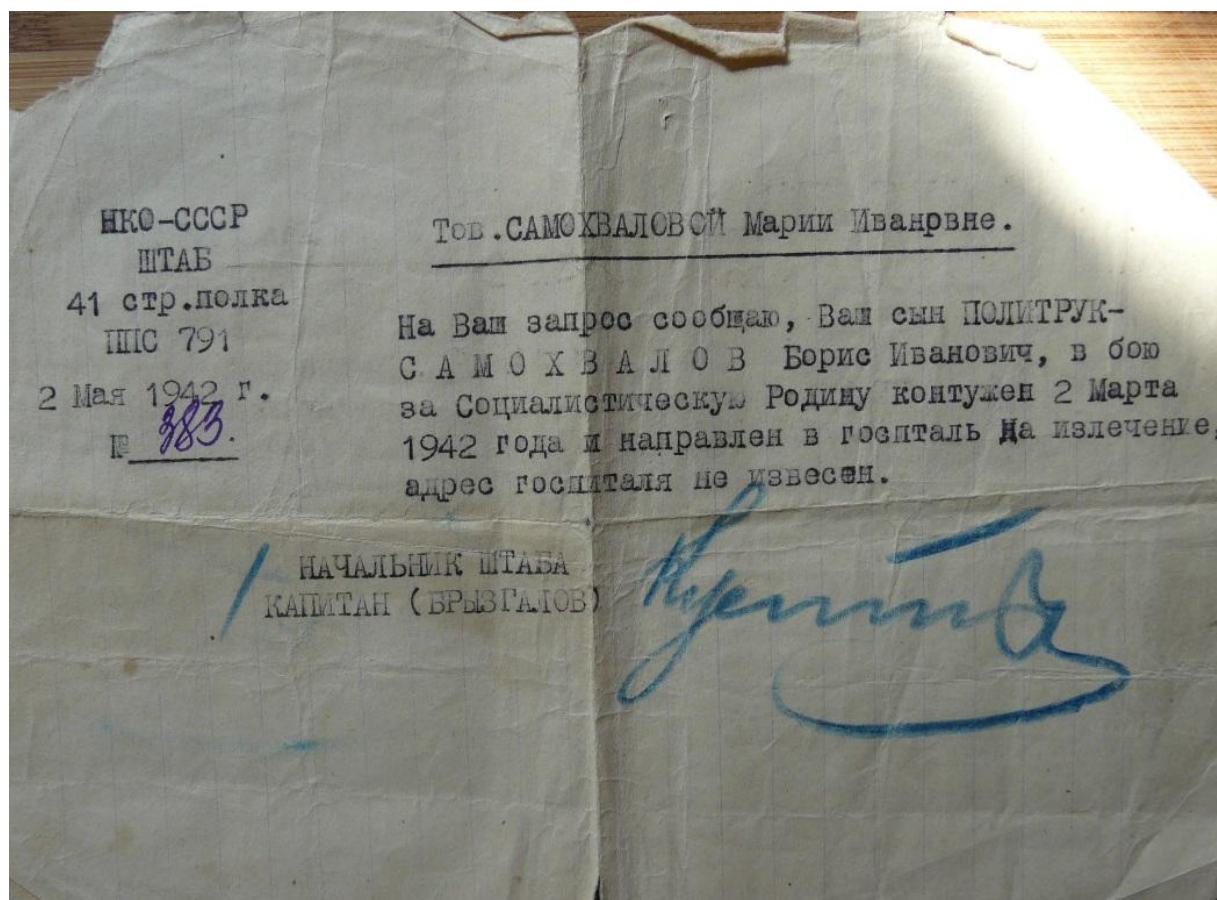 НКО-СССР
ШТАБ
41 стр.полка
ППС 791
2 Мая 1942 г.
№ 383.
Тов.САМОХВАЛОВОЙ Марии Иванрвне.
На Ваш запрос сообщаю, Ваш сын ПОЛИТРУК-
С А М О Х В А Л О В Борис Иванович, в бою
за Социалистическую Родину контужен 2 Марта
1942 года и направлен в госпталь на излечение,
адрес госпиталя не извесен.
НАЧАЛЬНИК ШТАБА
КАПИТАН (БРЫЗГАЛОВ)